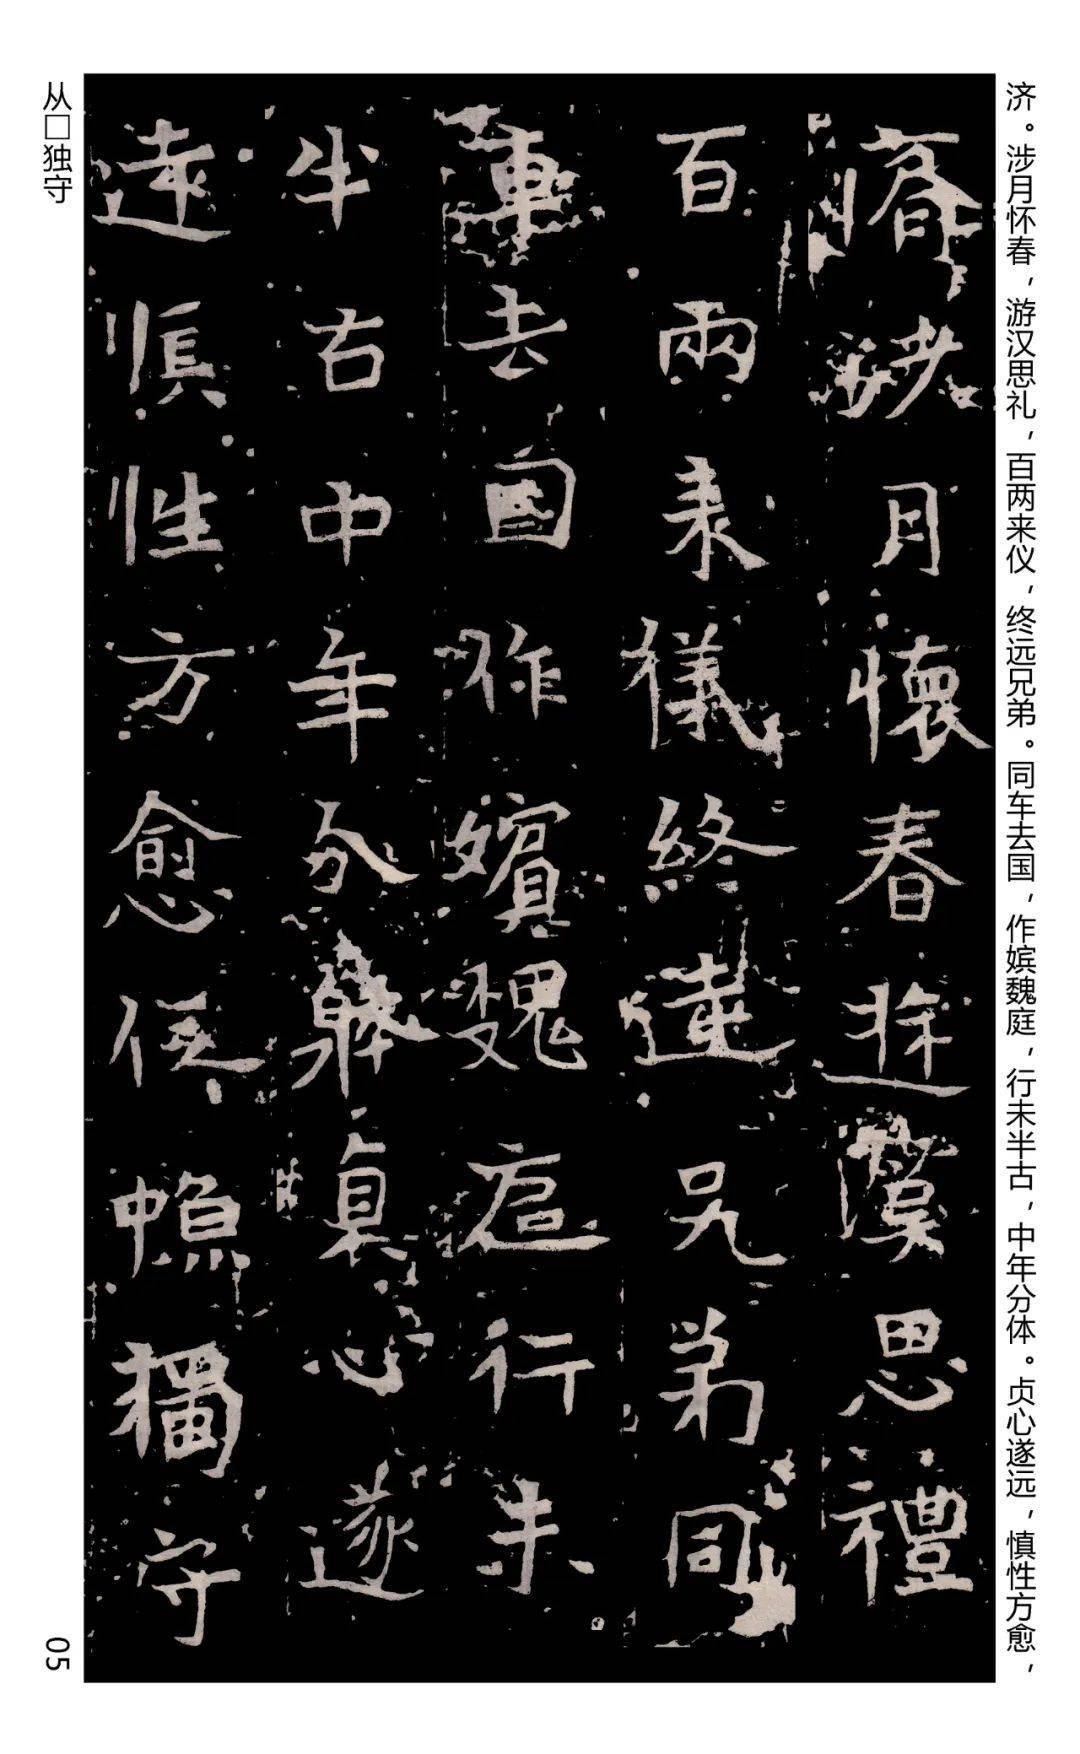 济。涉月怀春，游汉思礼，百两来仪，终远兄弟。同车去国，作嫔魏庭，行未半古，中年分体。贞心遂远，慎性方愈，
濟涉月懷春遊漢思禮
百兩来儀終遠兄弟同
車去國作嬪魏庭行未
半古中年分躰貞心遂
遠慎性方愈從獨守
从□独守
05